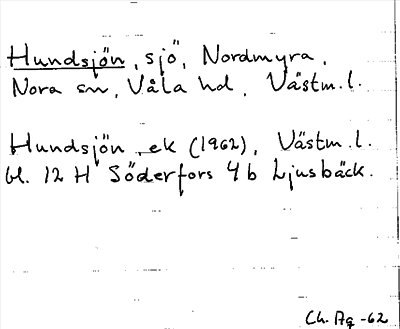 Hundsjön, sjö, Nordmyra,
Nora sn, Våla hd, Västm. l.
Hundsjön ek (1962), Västm. l.
bl. 12 H Söderfors 4 b Ljusbäck.
Ch. Ag -62